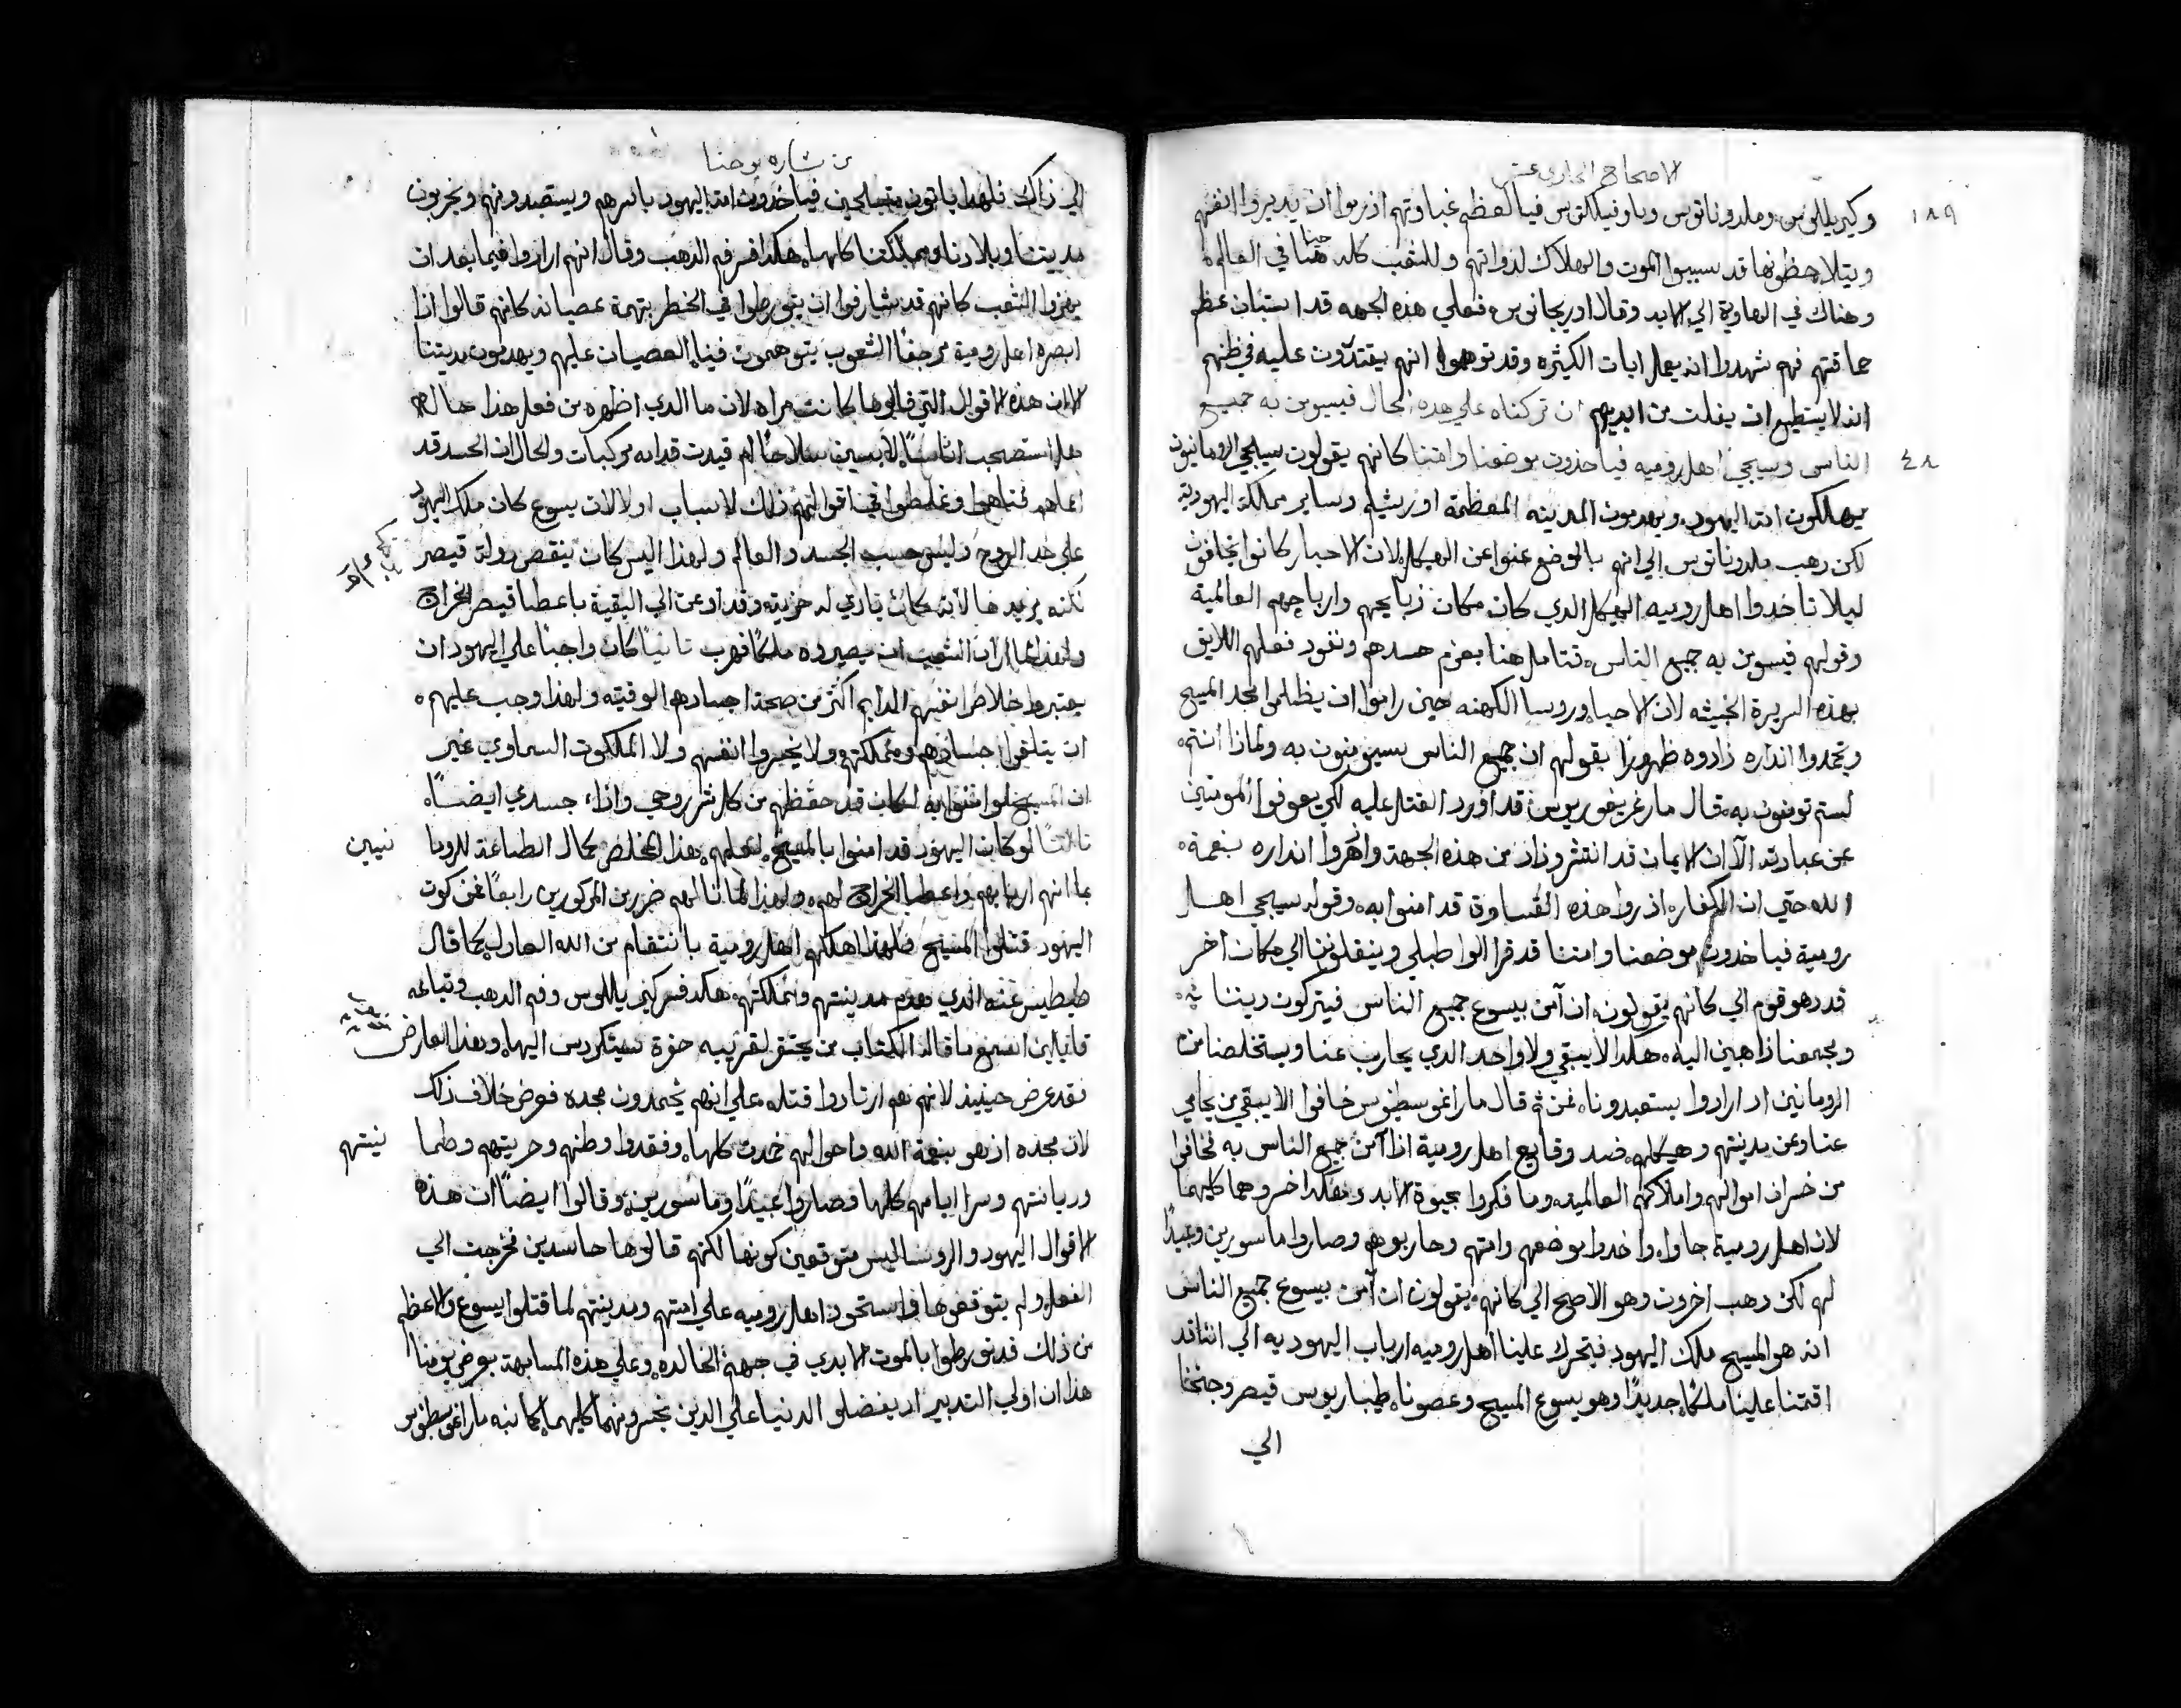 الاصحاح الحادي عشر
١٨٩
وكيريللوس وملدوناتوس وباوفيلكتوس فيا لعظم غباوتهم اذ رموا ان يدبروا انفسهم
ويتلاحظونها قد سببوا الموت والهلاك لذواتهم وللشعب كله هنا في العالم
وهناك في الهاوية الي الابد وقال اوريجانوس فعلي هذه الجهه قد استبان عظم
حماقتهم فهم شهدوا انه يعمل ايات الكثيره وقد توهموا انهم يقتدرون عليه في ظنهم
انه لا يستطيع ان يفلت من ايديهم ان تركناه علي هذه الحال فيسومن به جميع
٤٨
الناس وسيجي اهل روميه فياخذون موضعنا وامتنا كانهم يقولون سيجي الرومانيون
يهلكون امة اليهود ويهدمون المدينه المعظمة اورشليم وساير مملكة اليهودية
لكن ذهب ملدوناتوس الي انهم بالموضع عنوا عن الهيكل لان الاحبار كانوا يخافون
ليلا تاخدوا اهل روميه الهيكل الدي كان مكان زبايحهم وارباحهم العالمية
وقولهم فيسومن به جميع الناس فتامل هنا بعزم حسدهم ونفود فعلهم اللايق
بهذه السريرة الخبيثه لان الاحبار وروسا الكهنه حين راموا ان يظلموا مجد المسيح
ويخمدوا انداره زادوه ظهورا بقولهم ان جميع الناس سيومنون به ولماذا انتم
لستم تومنون به قال مار غريغوريوس قد اورد القتل عليه لكي يعوقوا المومنين
عن عبادته الا ان الايمان قد انتشر وزاد من هذه الجهة واثمروا انداره بنعمة
الله حتي ان الكفار اذ راوا هذه القساوة قد امنوا به وقوله سيجي اهل
رومية فياخدون موضعنا وامتنا قد قرا الواطبلي وينقلوننا الي مكان اخر
قد ذهو قوم الي كانهم يقولون ان آمن بيسوع جميع الناس فيتركون ديننا
ويجمعنا ذاهبين اليه هكدا لا يبقي ولا واحد الدي يحارب عنا ويستخلصنا من
الرومانين اد ارادوا يستعبدونا عن ثم قال مار اغوسطنوس خافوا الا يبقي من يحامي
عنا وعن مدينتهم وهيكلهم ضد وقايع اهل رومية اذا آمن جميع الناس به فخافوا
من خسران اموالهم واملاكهم العالميه وما فكروا بحيوة الابد وهكدا خسروهما كليهما
لان اهل رومية جاوا واخدوا موضعهم وامتهم وحاربوهم وصاروا ماسورين وعبيدًا
لهم لكن دهب اخرون وهو الاصح الي كانهم يقولون ان آمن بيسوع جميع الناس
انه هو المسيح ملك اليهود فيتحرك علينا اهل روميه ارباب اليهوديه الي اننا قد
اقمنا علينا ملكًا جديدًا وهو يسوع المسيح وعصونا طيباريوس قيصر وجنحنا
الي
من بشارة يوحنا
الي ذاك فلهدا ياتون متسلحين فياخدون امة اليهود باسرهم ويستعبدونهم ويخربون
مدينتنا وبلادنا ومملكتنا كلها هكدا فسر فم الدهب وقال انهم ارادوا فيما بعد ان
يهزوا الشعب كانهم قد شارفوا ان يتورطوا في الخطر بتهمة عصيانه كانهم قالوا اذا
ابصره اهل رومية مرجفًا الشعوب يتوهمون فينا العصيان عليهم ويهدمون مدينتنا
الا ان هذه الاقوال التي قالوها كانت مراه لان ما الدي اظهره من فعل هذا حاله
هل استصحب اناسًا لابسين سلاحًا ام قيدت قدامه مركبات والحال ان الحسد قد
اعماهم فتناهوا وغلطوا في اقوالهم ذلك لاسباب اولا لان يسوع كان ملك اليهود
علي حد الروح وليس حسب الجسد والعالم ولهذا اليس كان ينقص دولة قيصر
لكنه يزيدها لانه كان يادي له جزيته وقد اوعز الي البقية باعطا قيصر الخراج
ولهذا لما راد الشعب ان يصيروه ملكًا فهرب ثانيًا كان واجبًا علي اليهود ان
يعتبروا خلاص انفسهم الدايم اكثر من صحة اجسادهم الوقتيه ولهذا وجب عليهم
ان يتلفوا اجسادهم ومملكتهم ولا يخسروا انفسهم ولا الملكوت السماوي غير
ان المسيح لو امنوا به لكان قد حفظهم من كل شر روحي واذاء جسدي ايضًا
ثالثًا لو كان اليهود قد امنوا بالمسيح لعلمهم هذا المخلص بحال الطاعة للروما
نيين
بما انهم اربابهم واعطا الخراج لهم ولهذا لما نالهم ضرر من المذكورين رابعًا عن كون
اليهود قتلوا المسيح فلهذا اهلكهم اهل رومية بانتقام من الله العادل كما قال
طيطيس عنه الذي هدم مدينتهم ومملكتهم هكدا فسر كيريللوس وفم الدهب وتباعه
قايلين اسمع ما قاله الكتاب من يحتفر لقريبه حفرة سيتكردس اليها وهذا العارض
فقد عرض حينيذ لانهم هم ارتادوا قتله علي انهم يخمدون مجده فعرض خلاف ذلك
لان مجده ازهو بنعمة الله واحوالهم خمدت كلها وفقدوا وطنهم وحريتهم وطما
نينتهم
وديانتهم وسرا ايامهم كلها فصاروا عبيدًا وماسورين وقالوا ايضًا ان هذه
الاقوال اليهود والروسا ليس متوقعين كونها لكنهم قالوها حاسدين فخرجت الي
الفعل ولم يتوقعوها واستحود اهل روميه علي امتهم ومدينتهم لما قتلوا يسوع والاعظم
من ذلك قد تورطوا بالموت الابدي في جهنم الخالده وعلي هذه المسابهة يعرض يومنا
هذا ان اولي التدبير اد يفضلو الدنيا علي الدين يخسرونهما كليهما كما نبه مار اغوسطنوس